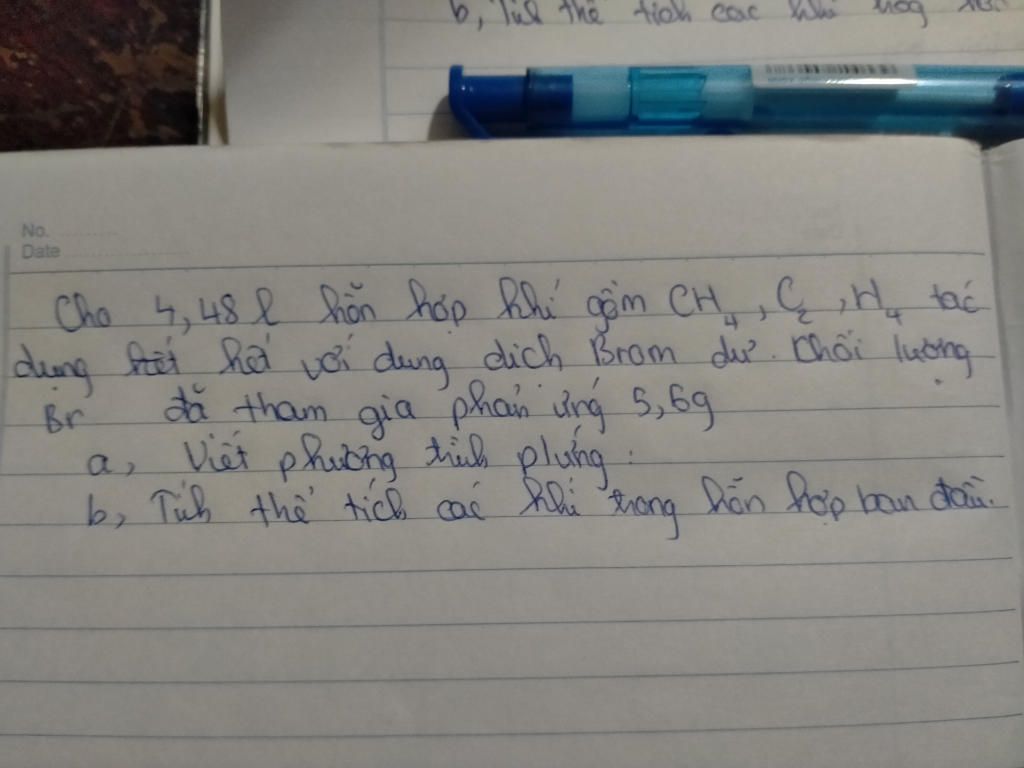 b, Tính thể tích các khí trog
No.
Date
Cho 4,48 l hỗn hợp khí gồm CH₄, C₂, H₄ tác
dụng hết hết với dung dich Brom dư. Khối lượng
Br đã tham gia phản ứng 5,6g
a, Viết phương trình p/ứng:
b, Tính thể tích các khí trong hỗn hợp ban đầu.